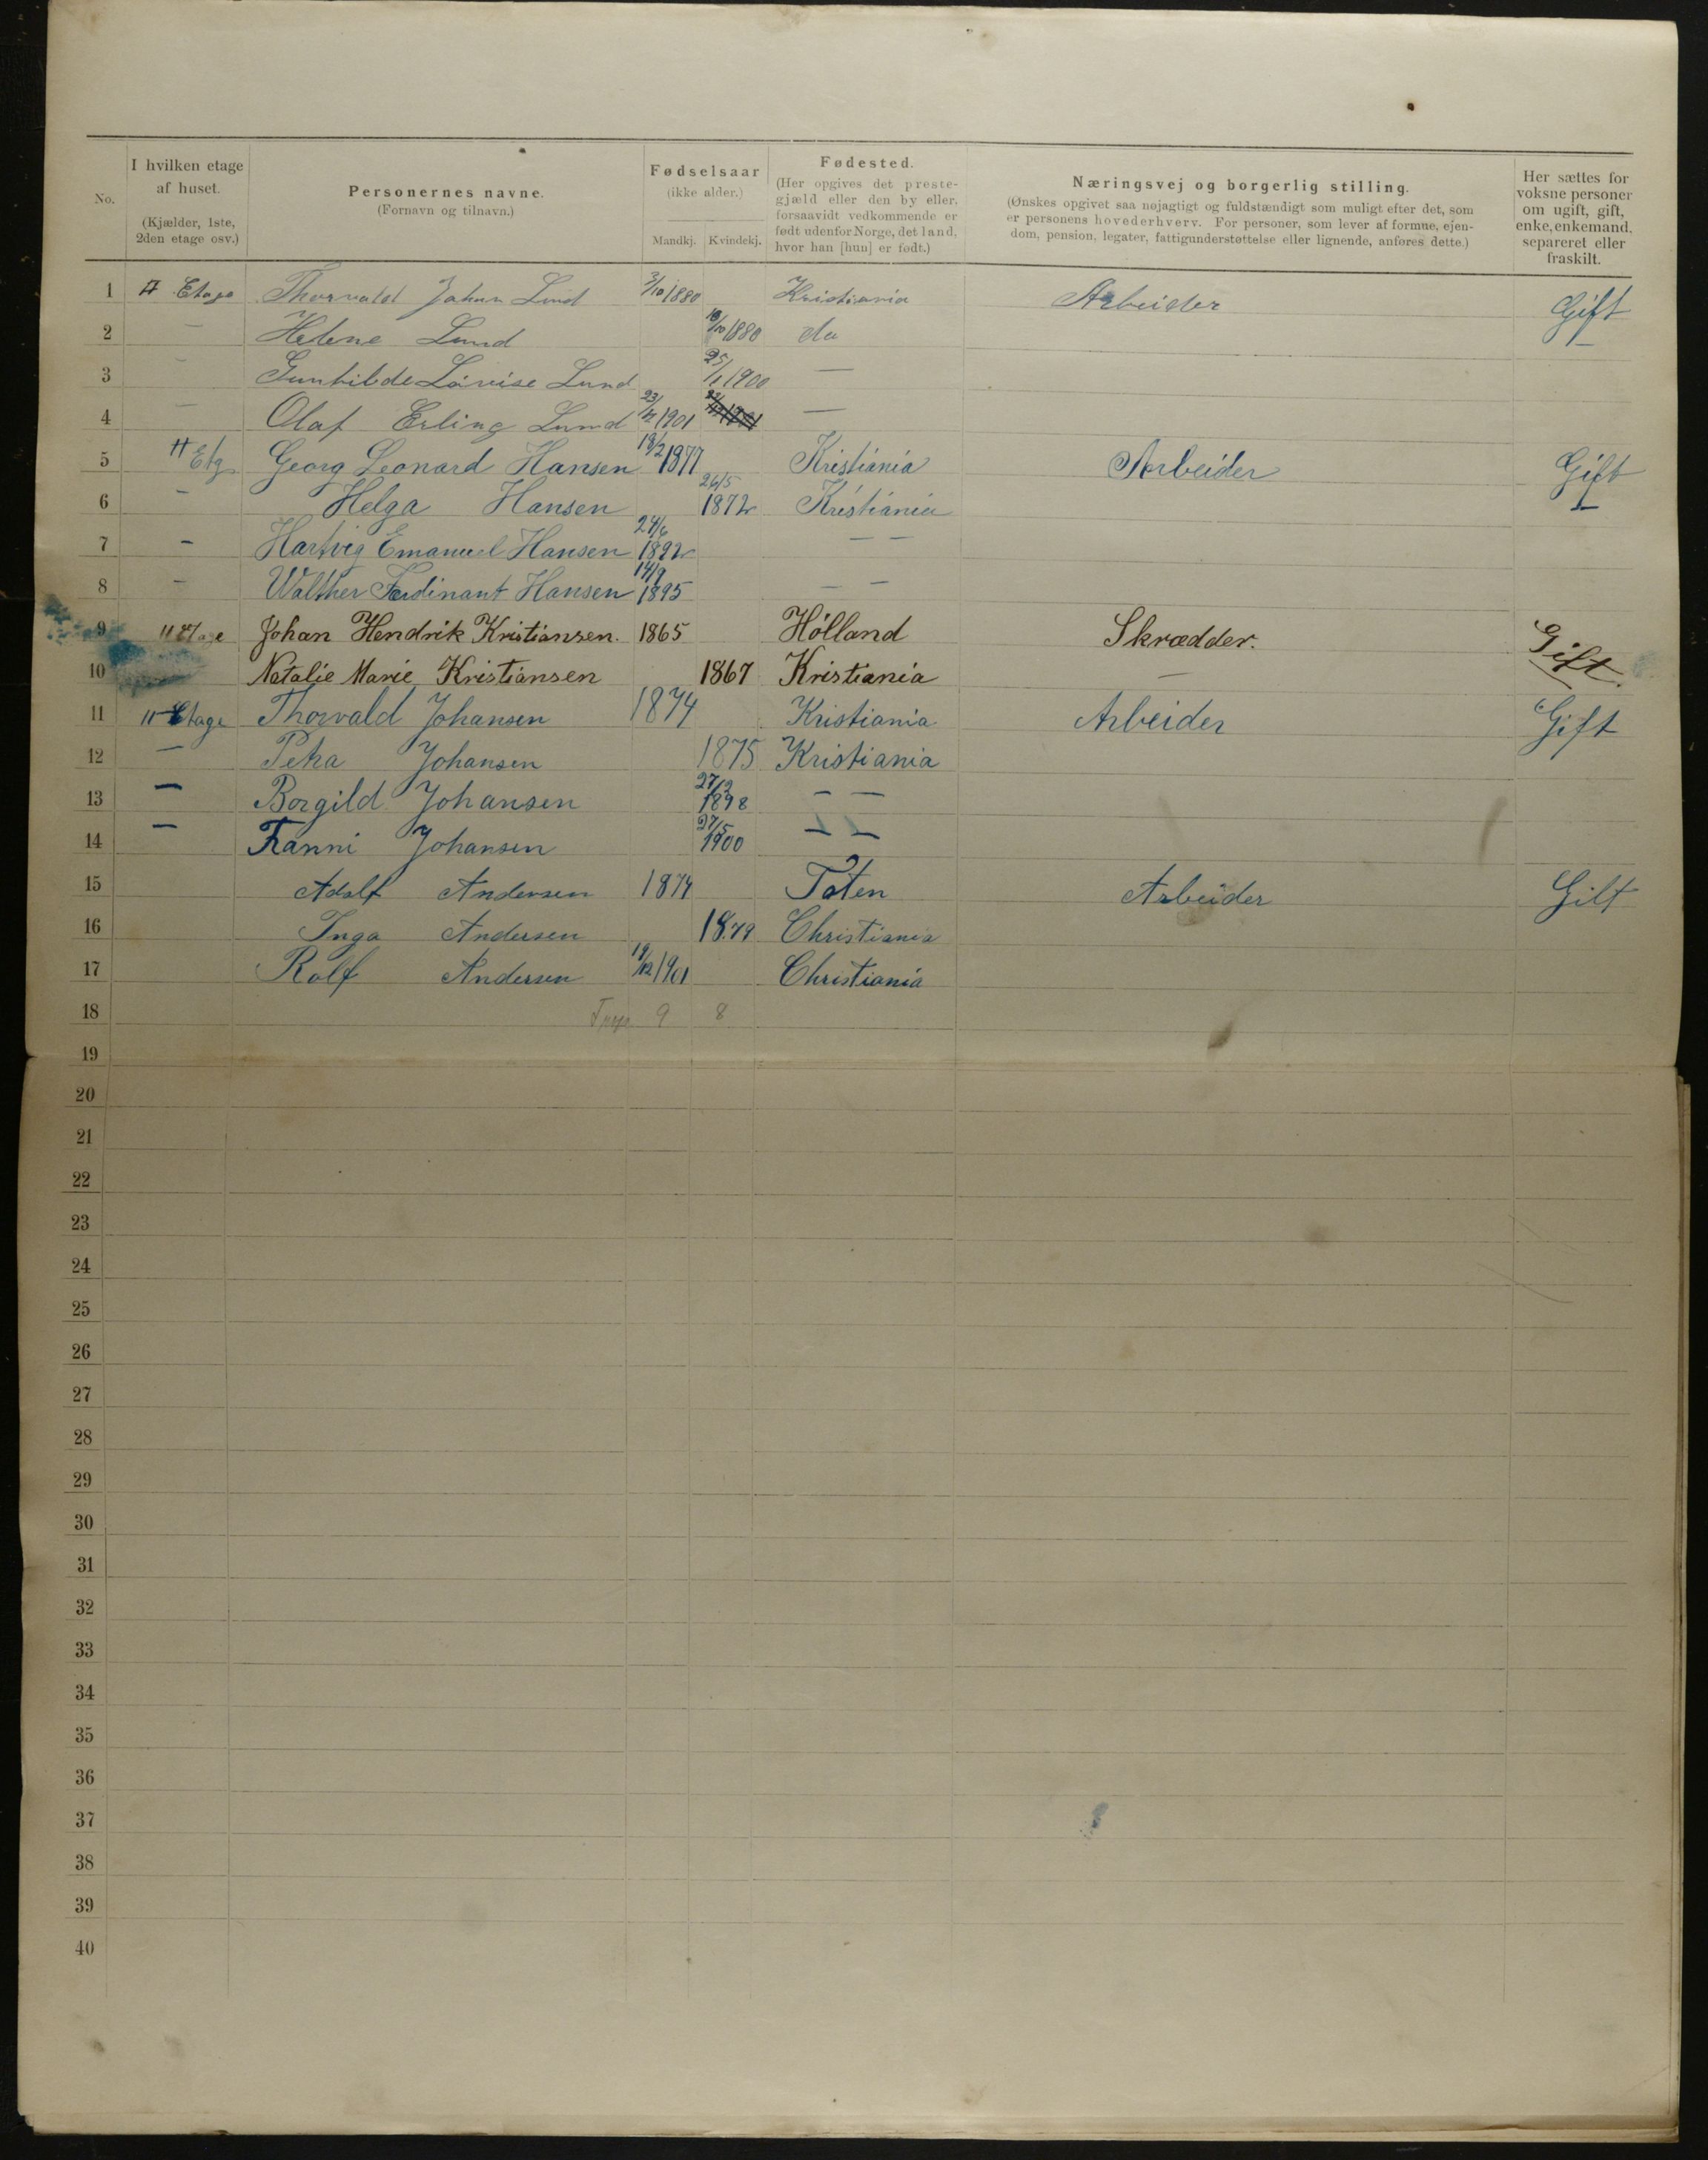 No.
I hvilken etage af huset.
(Kjælder, 1ste, 2den etage osv.)
Personernes navne.
(Fornavn og tilnavn.)
Fødselsaar
(ikke alder.)
Mandkj. Kvindekj.
Fødested.
(Her opgives det preste-
gjæld eller den by eller,
forsaavidt vedkommende er
født udenfor Norge, det land,
hvor han [hun] er født.)
Næringsvej og borgerlig stilling.
(Ønskes opgivet saa nøjagtigt og fuldstændigt som muligt efter det, som
er personens hovederhverv. For personer, som lever af formue, ejen-
dom, pension, legater, fattigunderstøttelse eller lignende, anføres dette.)
Her sættes for
voksne personer
om ugift, gift,
enke, enkemand,
separeret eller
fraskilt.
1 II Etage Thorvald Johan Lund 3/10 1880 Kristiania Arbeider Gift
2 — Helene Lund 1880 do
3 — Gunhilde Lovise Lund 25/1 1900 —
4 — Olaf Erling Lund 23/12 1901 —
5 II Etg Georg Leonard Hansen 18/2 1877 Kristiania Arbeider Gift
6 — Helga Hansen 26/5 1872 Kristiania
7 — Hartvig Emanuel Hansen 24/6 1892 — —
8 — Walther Ferdinant Hansen 14/9 1895 — —
9 11 etage Johan Hendrik Kristiansen. 1865 Hølland Skrædder. Gift.
10 Natalie Marie Kristiansen 1867 Kristiania —
11 11 Etage Thorvald Johansen 1874 Kristiania Arbeider Gift
12 — Petra Johansen 1875 Kristiania
13 — Borgild Johansen 1898 — —
14 — Fanni Johansen 27/5 1900 — —
15 Adolf Andersen 1874 Toten Arbeider Gift
16 Inga Andersen 1879 Christiania
17 Rolf Andersen 19/12 1901 Christiania
18 9 8
19
20
21
22
23
24
25
26
27
28
29
30
31
32
33
34
35
36
37
38
39
40